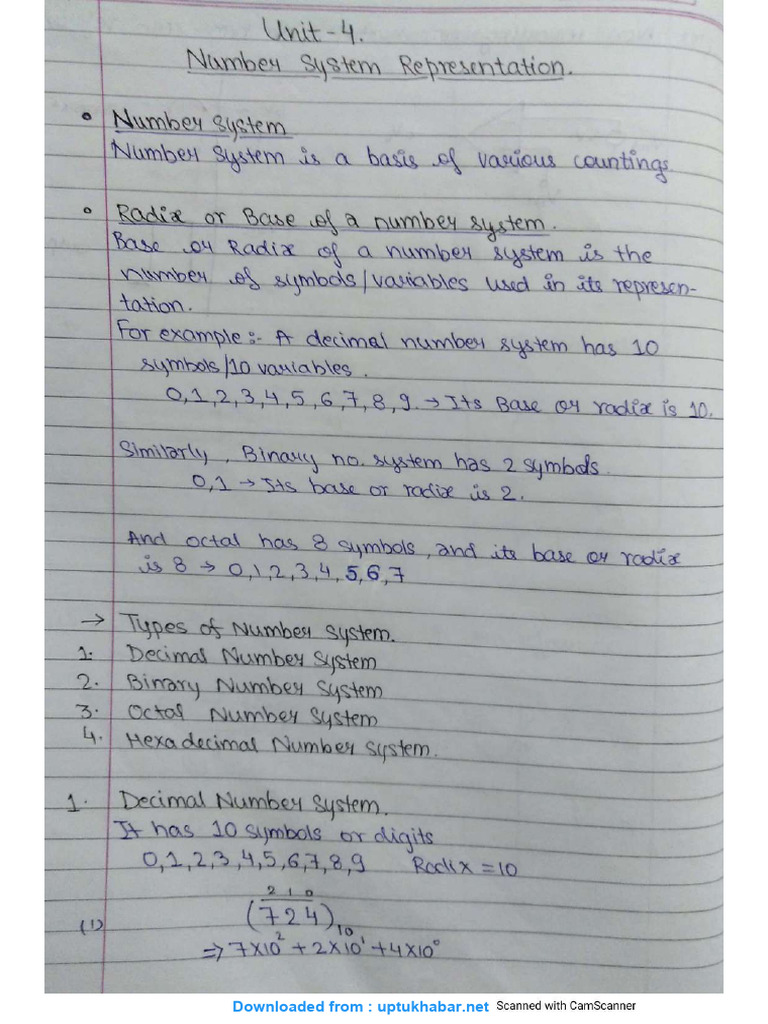 Unit-4.
Number System Representation.
• Number System
Number System is a basis of various countings.
• Radix or Base of a number system.
Base or Radix of a number system is the
number of symbols/variables used in its represen-
tation.
For example:- A decimal number system has 10
symbols/10 variables.
0,1,2,3,4,5,6,7,8,9. → Its Base or radix is 10.
Similarly, Binary no. system has 2 symbols.
0,1 → Its base or radix is 2.
And octal has 8 symbols, and its base or radix
is 8 → 0,1,2,3,4,5,6,7
→ Types of Number System.
1. Decimal Number System
2. Binary Number System
3. Octal Number System
4. Hexadecimal Number System.
1. Decimal Number System.
It has 10 symbols or digits
0,1,2,3,4,5,6,7,8,9 Radix = 10
2 1 0
(1) (724)₁₀
⇒ 7×10² + 2×10¹ + 4×10⁰
Downloaded from : uptukhabar.net Scanned with CamScanner